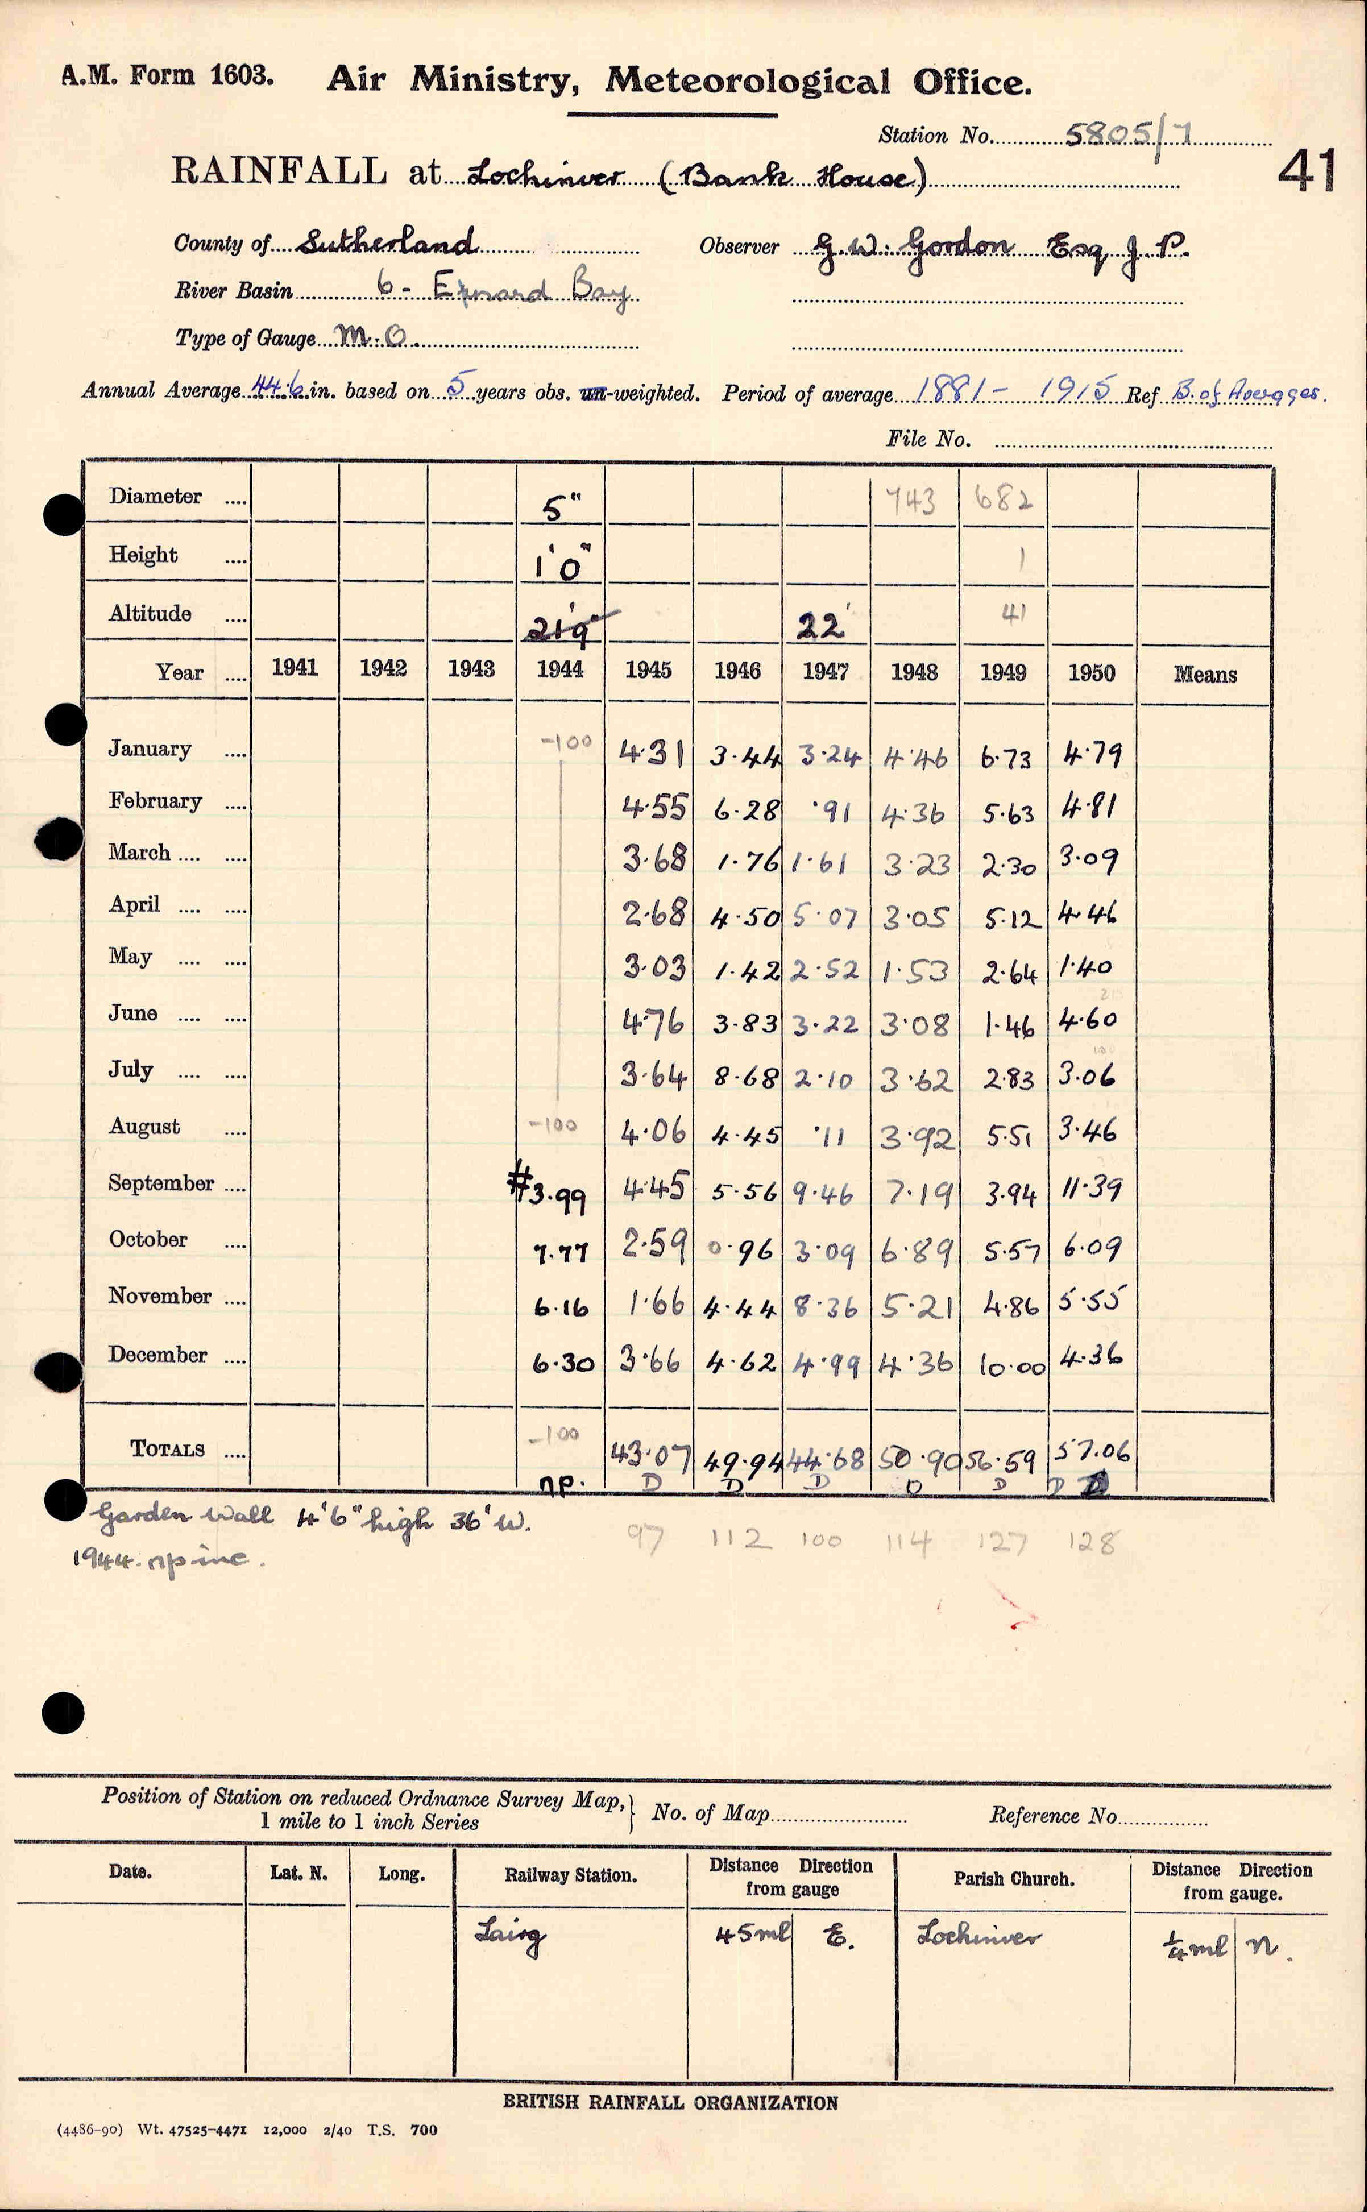 A.M. Form 1603. Air Ministry, Meteorological Office.
Station No. 5805/7
41
RAINFALL at Lochinver (Bank House)
County of Sutherland Observer G.W. Gordon Esq J.P.
River Basin 6 - Enard Bay
Type of Gauge M.O.
Annual Average 44.6 in. based on 5 years obs. un-weighted. Period of average 1881 - 1915 Ref B. of Averages.
File No.
Diameter .... 5" 743 682
Height .... 1'0" 1
Altitude .... 21'9" 22' 41
Year .... 1941 1942 1943 1944 1945 1946 1947 1948 1949 1950 Means
January .... -100 4.31 3.44 3.24 4.46 6.73 4.79
February .... 4.55 6.28 .91 4.36 5.63 4.81
March .... .... 3.68 1.76 1.61 3.23 2.30 3.09
April .... .... 2.68 4.50 5.07 3.05 5.12 4.46
May .... .... 3.03 1.42 2.52 1.53 2.64 1.40
June .... .... 4.76 3.83 3.22 3.08 1.46 4.60
July .... .... 3.64 8.68 2.10 3.62 2.83 3.06
August .... -100 4.06 4.45 .11 3.92 5.51 3.46
September .... #3.99 4.45 5.56 9.46 7.19 3.94 11.39
October .... 7.77 2.59 0.96 3.09 6.89 5.57 6.09
November .... 6.16 1.66 4.44 8.36 5.21 4.86 5.55
December .... 6.30 3.66 4.62 4.99 4.36 10.00 4.36
TOTALS .... -100 43.07 49.94 44.68 50.90 56.59 57.06
np. D D D D D D
Garden Wall 4'6" high 36' W. 97 112 100 114 127 128
1944. np inc.
Position of Station on reduced Ordnance Survey Map, 1 mile to 1 inch Series } No. of Map Reference No.
Date. Lat. N. Long. Railway Station. Distance Direction from gauge Parish Church. Distance Direction from gauge.
Lairg 45 ml E. Lochinver ¼ ml N.
BRITISH RAINFALL ORGANIZATION
(4486-90) Wt. 47525-4471 12,000 2/40 T.S. 700